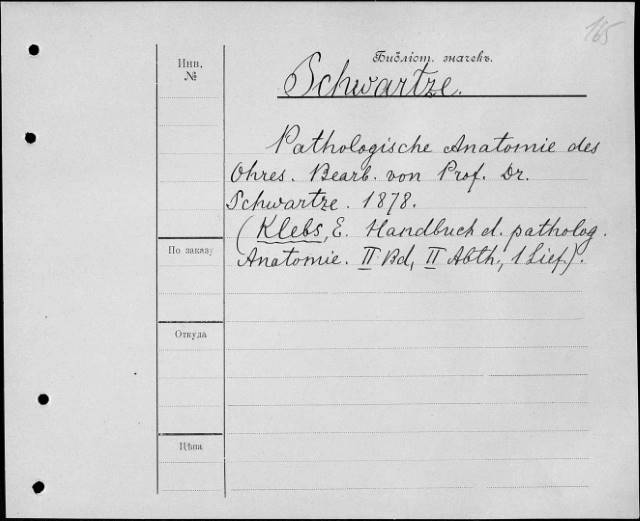 165
Инв.
№
Библіот. значекъ.
Schwartze.
Pathologische Anatomie des
Ohres. Bearb. von Prof. Dr.
Schwartze. 1878.
(Klebs, E. Handbuch d. patholog.
Anatomie. II Bd, II Abth., 1 Lief.).
По заказу
Откуда
Цѣна